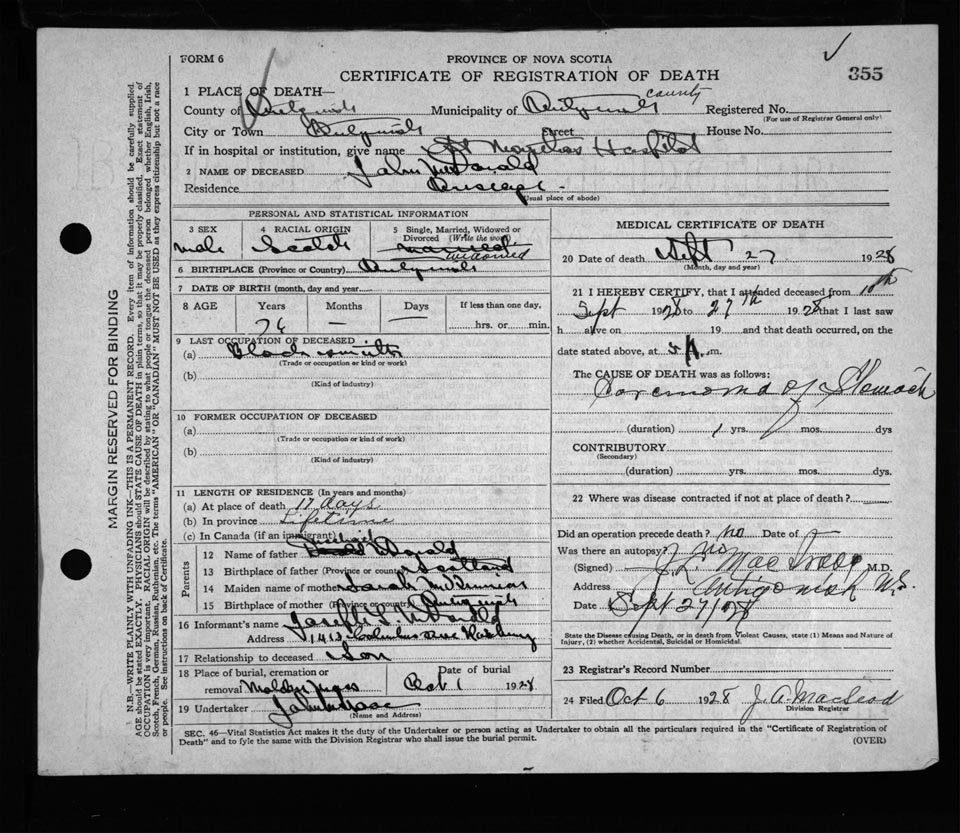 FORM 6
PROVINCE OF NOVA SCOTIA
CERTIFICATE OF REGISTRATION OF DEATH
355
1 PLACE OF DEATH—
County of Antigonish Municipality of Antigonish county Registered No.
(For use of Registrar General only)
City or Town Antigonish Street House No.
If in hospital or institution, give name St Marthas Hospital
2 NAME OF DECEASED John McDonald
Residence
(Usual place of abode)
PERSONAL AND STATISTICAL INFORMATION
3 SEX
male
4 RACIAL ORIGIN
Scotch
5 Single, Married, Widowed or Divorced (Write the word)
married
widowed
6 BIRTHPLACE (Province or Country) Antigonish
7 DATE OF BIRTH (month, day and year)
8 AGE Years Months Days If less than one day,
76 — — hrs. or min.
9 LAST OCCUPATION OF DECEASED
(a) Blacksmith
(Trade or occupation or kind of work)
(b)
(Kind of industry)
10 FORMER OCCUPATION OF DECEASED
(a)
(Trade or occupation or kind of work)
(b)
(Kind of industry)
11 LENGTH OF RESIDENCE (In years and months)
(a) At place of death 11 days
(b) In province Lifetime
(c) In Canada (if an immigrant)
Parents
12 Name of father Donald
13 Birthplace of father (Province or country) Scotland
14 Maiden name of mother Sarah
15 Birthplace of mother (Province or country) Antigonish
16 Informant's name Joseph
Address 1413 Columbus Ave Roxbury
17 Relationship to deceased Son
18 Place of burial, cremation or removal Date of burial
Oct 1 1928
19 Undertaker John
(Name and Address)
MEDICAL CERTIFICATE OF DEATH
20 Date of death Sept 27 1928
(Month, day and year)
21 I HEREBY CERTIFY, that I attended deceased from 10th
Sept 1928 to 27th 1928 that I last saw
h alive on 19 and that death occurred, on the
date stated above, at 5 A. m.
The CAUSE OF DEATH was as follows:
Carcinoma of Stomach
(duration) 1 yrs. mos. dys
CONTRIBUTORY
(Secondary)
(duration) yrs. mos. dys.
22 Where was disease contracted if not at place of death?
Did an operation precede death? no Date of
Was there an autopsy? no
(Signed) J. L. M.D.
Address Antigonish N.S.
Date Sept 27/28
State the Disease causing Death, or in death from Violent Causes, state (1) Means and Nature of
Injury, (2) whether Accidental, Suicidal or Homicidal.
23 Registrar's Record Number
24 Filed Oct 6 1928 J. A. MacLeod
Division Registrar
SEC. 46—Vital Statistics Act makes it the duty of the Undertaker or person acting as Undertaker to obtain all the particulars required in the "Certificate of Registration of
Death" and to fyle the same with the Division Registrar who shall issue the burial permit.
(OVER)
MARGIN RESERVED FOR BINDING
N.B.—WRITE PLAINLY WITH UNFADING INK—THIS IS A PERMANENT RECORD. Every item of information should be carefully supplied.
AGE should be stated EXACTLY. PHYSICIANS should STATE CAUSE OF DEATH in plain terms, so that it may be properly classified. Exact statement of
OCCUPATION is very important. RACIAL ORIGIN will be described by stating to what people or tongue the deceased person belonged whether English, Irish,
Scotch, French, German, Russian, Ruthenian, etc. The terms "AMERICAN" OR "CANADIAN" MUST NOT BE USED as they express citizenship but not a race
or people. See instructions on back of Certificate.